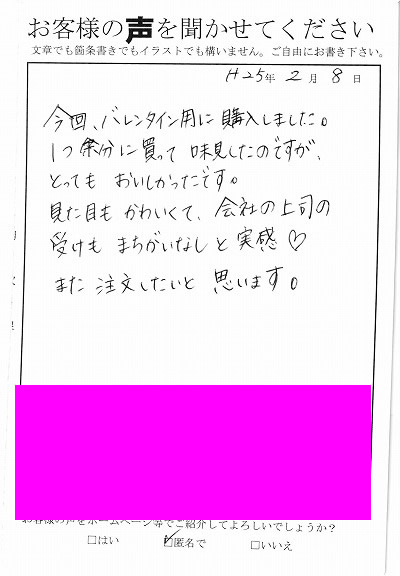 お客様の声を聞かせてください
文章でも箇条書きでもイラストでも構いません。ご自由にお書き下さい。
H25年 2月 8日
今回、バレンタイン用に購入しました。
1つ余分に買って味見したのですが、
とってもおいしかったです。
見た目もかわいくて、会社の上司の
受けもまちがいなしと実感♡
また注文したいと思います。
お客様の声をホームページ等でご紹介してよろしいでしょうか?
□はい ☑匿名で □いいえ